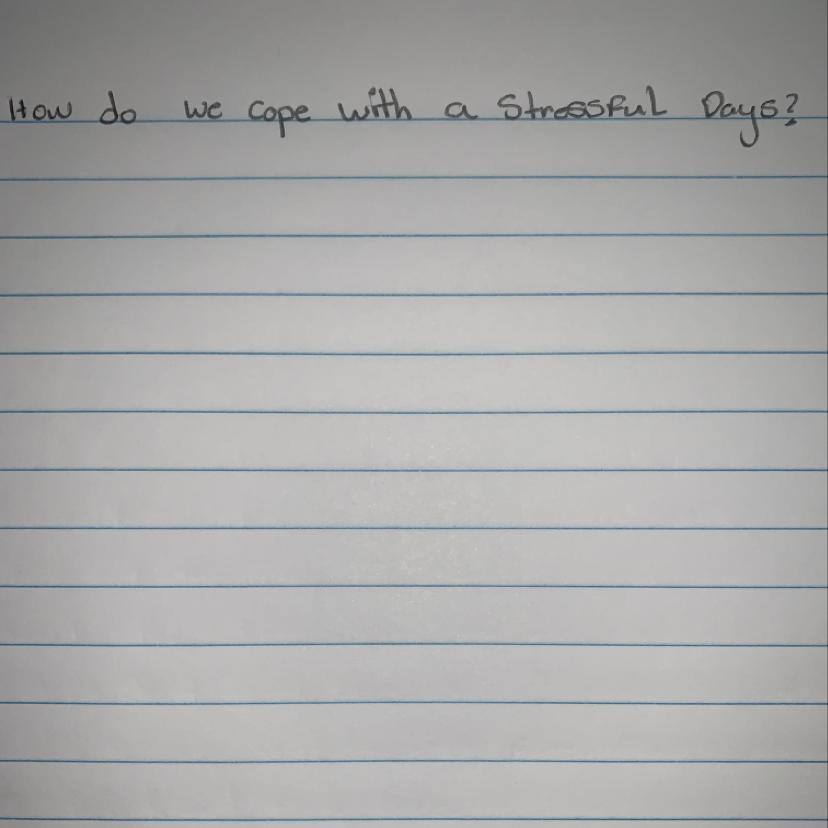 How do we cope with a Stressful Days?